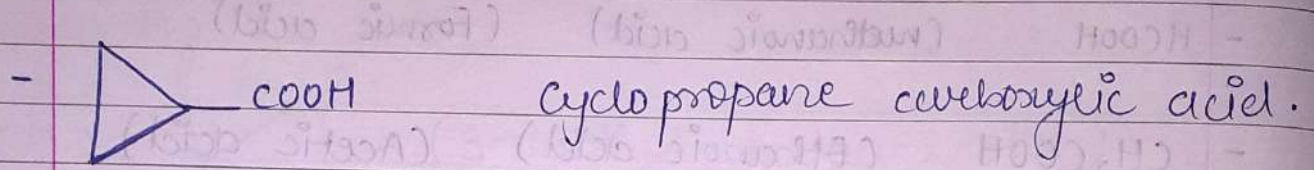 - COOH cyclopropane carboxylic acid.